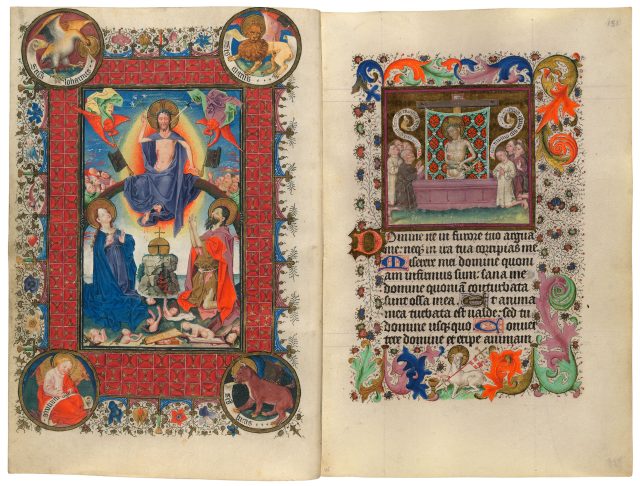 Domine ne in furore tuo argua
me: neq; in ira tua corripias me
Miserere mei domine quoni
am infirmus sum: sana me
domine quoniā conturbata
sunt ossa mea. Et anima
mea turbata est valde: sed tu
domine usq; quo Conver
tere domine et eripe animam